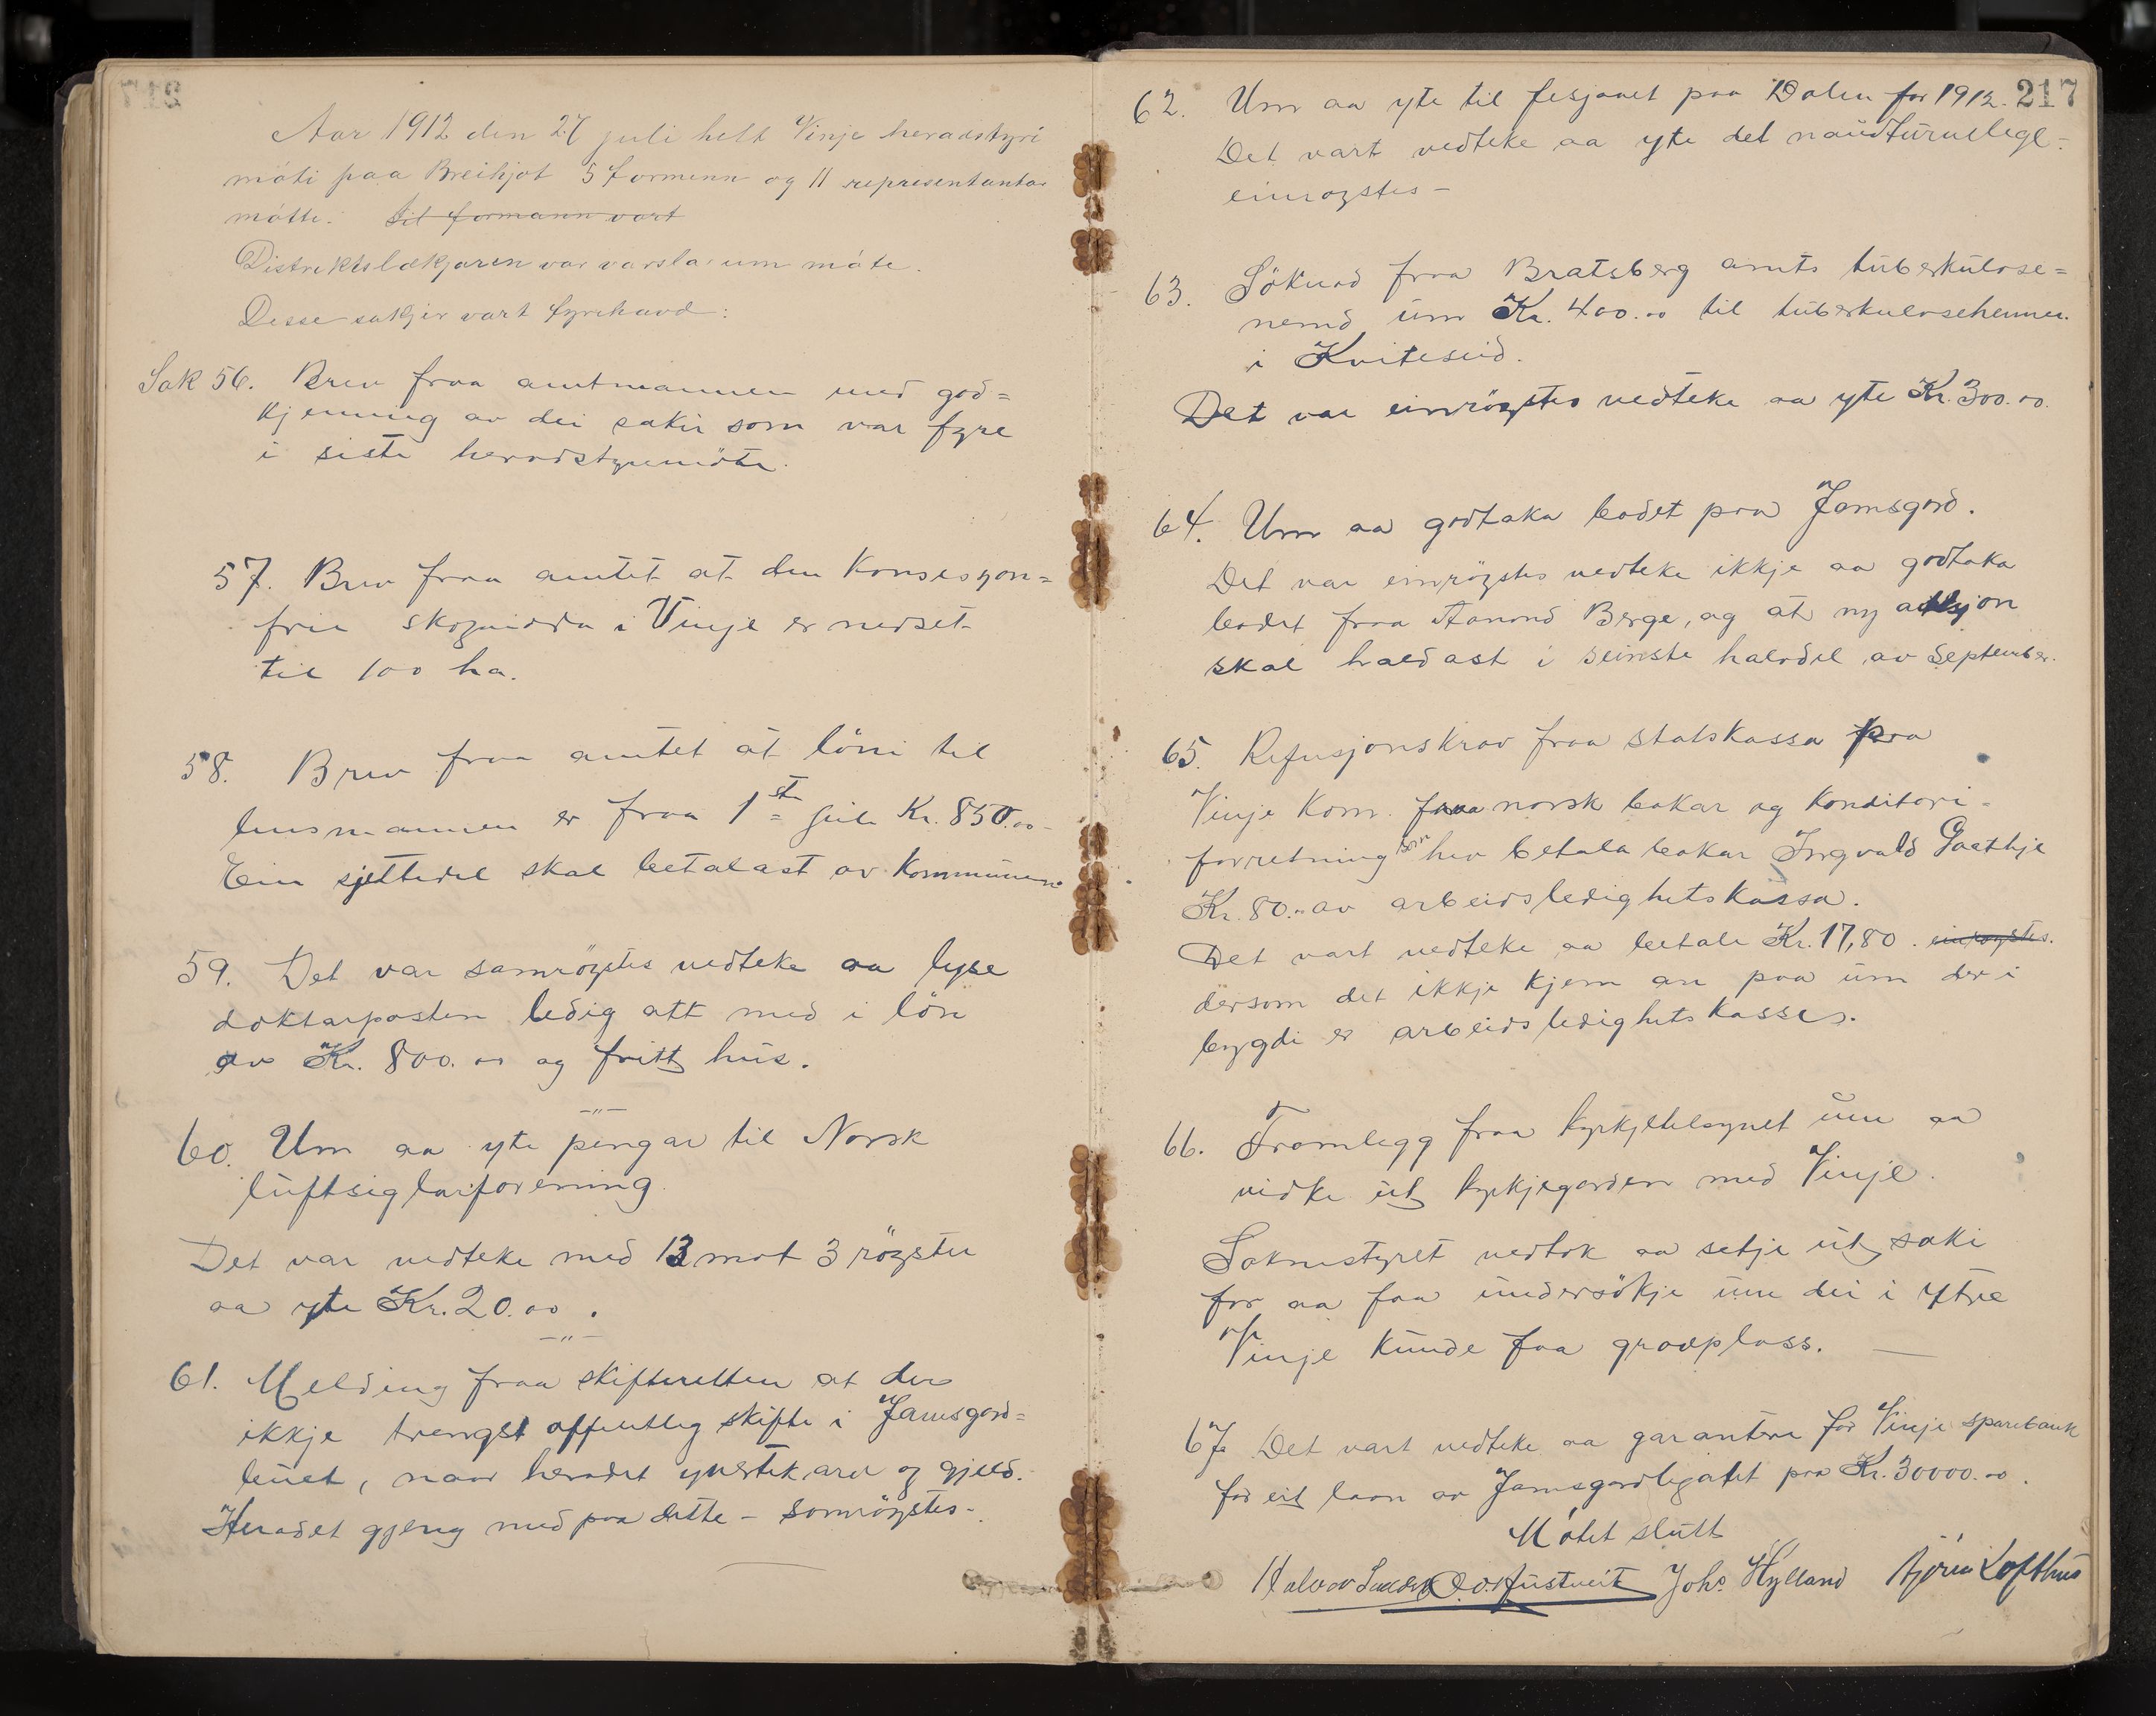 Aar 1912 den 27 juli helt Vinje heradstyri
möti paa Breihjot 5 formenn og 11 representantar
mötte. Til formann vart
Distriktslækjaren var varsla um möte.
Desse sakjir vart fyrehavd:
Sak 56. Brev fraa amtmannen med god=
kjenning av dei sakir som var fyre
i siste heradstyremöte.
57. Brev fraa amtet at den konsesjon=
frie skogvidda i Vinje er nedset
til 100 ha.
58. Brev fraa amtet at löni til
lensmannen er fraa 1ste juli Kr. 850.00-
Ein sjettedel skal betalast av kommunen.
59. Det var samröystes vedteke aa lyse
doktarposten ledig att med i lön
av Kr. 800.00 og fritt hus.
-"-
60. Um aa yte pengar til Norsk
luftsiglarforening
Det var vedteke med 13 mot 3 röyster
aa yte Kr. 20.00.
-"-
61. Melding fraa skifteretten at der
ikkje trengst offentleg skifte i Jamsgard=
buet, naar heradet yvertek arv og gjeld.
Heradet gjeng med paa dette - samröystes-.
217
62. Um aa yte til fesjaaet paa Dalen for 1912.
Det vart vedteke aa yte det naudturvelege-
einröystes-
63. Söknad fraa Bratsberg amts tuberkulose=
nemd um Kr. 400.00 til tuberkuloseheimen
i Kviteseid.
Det var einröystes vedteke aa yte Kr. 300.00.
64. Um aa godtaka bodet paa Jamsgard.
Det var einröystes vedteke ikkje aa godtaka
bodet fraa Aanund Berge, og at ny auksjon
skal haldast i seinste halvdel av September.
65. Refusjonskrav fraa statskassa paa
Vinje Kom. fraa norsk bakar og konditori-
forretning som hev betala bakar Ingvald
Kr. 80.00 av arbeidsledighetskassa.
Det vart vedteke aa betale Kr. 17,80. einröystes.
dersom det ikkje kjem an paa um der i
bygdi er arbeidsledighetskasser.
66. Framlegg fraa kyrkjetilsynet um aa
vidke ut kyrkjegarden med Vinje.
Soknestyret vedtok aa setje ut saki
for aa faa undersökje um dei i ytre
Vinje kunde faa gravplass. —
67. Det vart vedteke aa garantere for Vinje sparebank
for eit laan av Jamsgardlegatet paa Kr. 30000.00.
Mötet slutt
Halvor Joh. Hylland Björn Lofthus